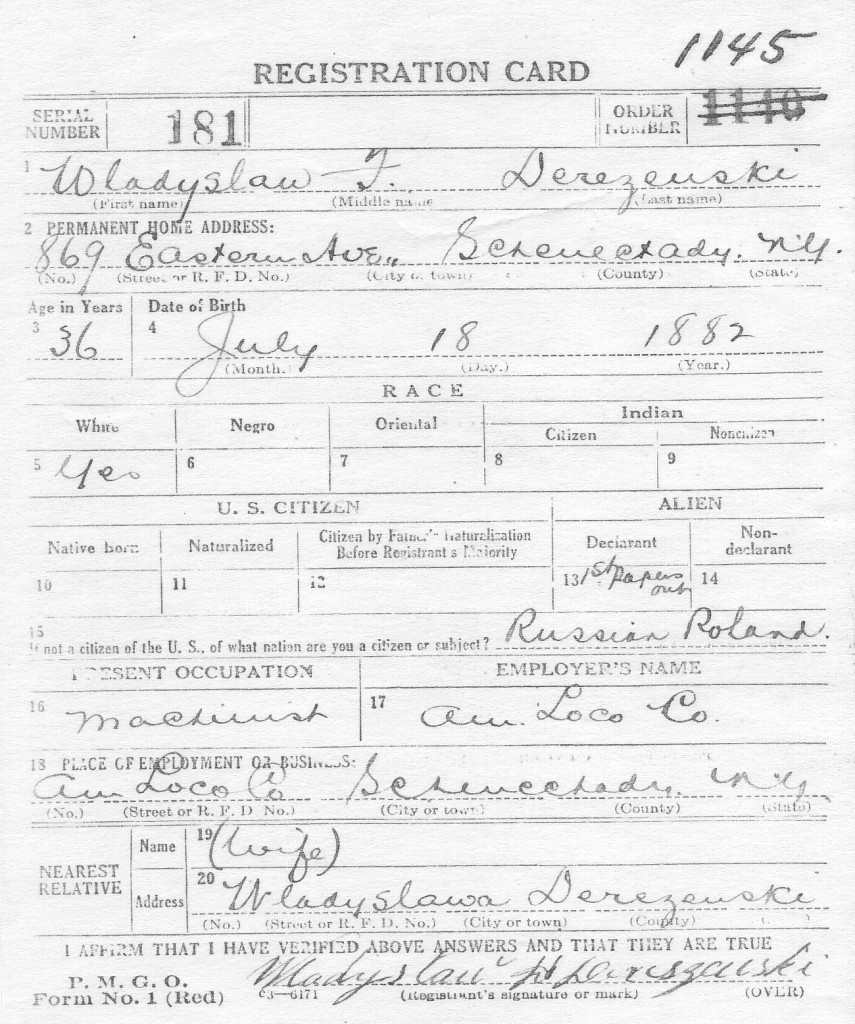 1145
REGISTRATION CARD
SERIAL NUMBER 181 ORDER NUMBER 1140
1 Wladyslaw F. Derezenski
(First name) (Middle name) (Last name)
2 PERMANENT HOME ADDRESS:
869 Eastern Ave., Schenectady. N.Y.
(No.) (Street or R. F. D. No.) (City or town) (County) (State)
Age in Years Date of Birth
3 36 4 July 18 1882
(Month.) (Day.) (Year.)
RACE
White Negro Oriental Indian
Citizen Noncitizen
5 Yes 6 7 8 9
U. S. CITIZEN ALIEN
Native born Naturalized Citizen by Father's Naturalization Before Registrant's Majority Declarant Non-declarant
10 11 12 13 1st papers out 14
15 If not a citizen of the U. S., of what nation are you a citizen or subject? Russian Poland.
PRESENT OCCUPATION EMPLOYER'S NAME
16 Machinist 17 Am. Loco Co.
18 PLACE OF EMPLOYMENT OR BUSINESS:
Am Loco Co Schenectady. N.Y.
(No.) (Street or R. F. D. No.) (City or town) (County) (State)
NEAREST RELATIVE Name 19 (Wife)
Address 20 Wladyslawa Derezenski
(No.) (Street or R. F. D. No.) (City or town) (County)
I AFFIRM THAT I HAVE VERIFIED ABOVE ANSWERS AND THAT THEY ARE TRUE
P. M. G. O.
Form No. 1 (Red) C3—6171 Wladyslaw
(Registrant's signature or mark) (OVER)